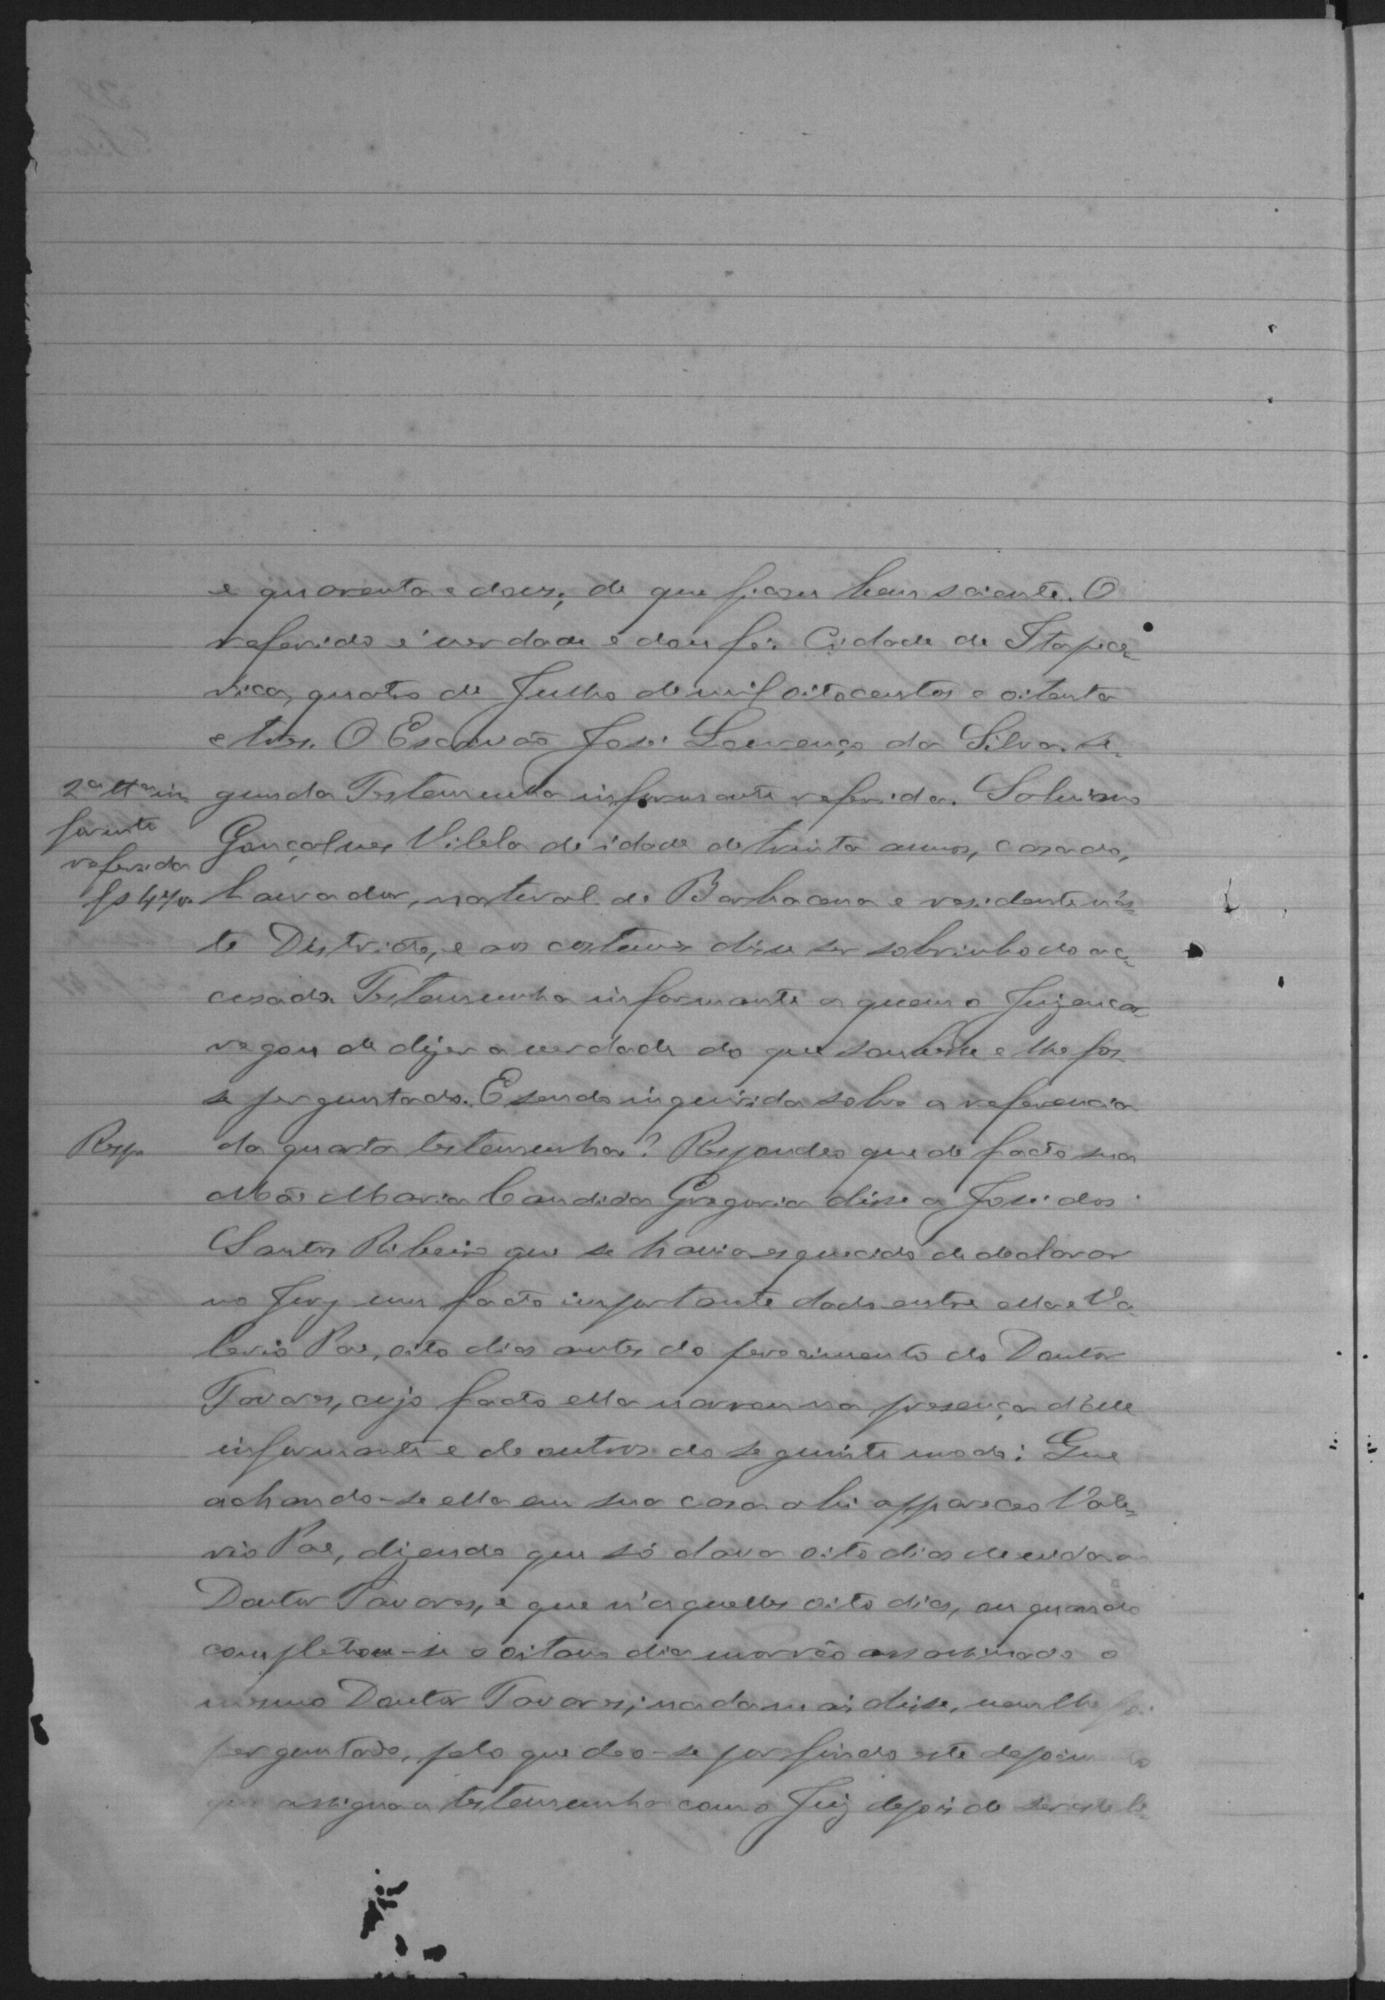 e quarenta e dous; de que ficou bem sciente. O
referido é verdade e dou fé. Cidade de Itapece-
rica, quatro de Julho de mil oitocentos e oitenta
e tres. O Escrivão José Lourenço da Silva. Se-
2ª ttª in
gunda Testemunha informante referida.
formte
Gonçalves Vilela de idade de trinta annos, casado,
referida
fs 47 v.
lavrador, natural de Barbacena e residente nés-
te Districto, e aos costumes disse ser sobrinho do ac-
cusado. Testemunha informante a quem o Juiz encar-
regou de dizer a verdade do que soubesse e lhe fos-
se perguntado. E sendo inquirida sobre a referencia
Resp.
da quarta testemunha? Respondeo que de facto sua
Mãe Maria Candida Gregoria disse a José dos
Santos Ribeiro que se havia esquecido de declarar
no Jury um facto importante dado entre ella e Va-
lerio Pae, oito dias antes do ferecimento do Doutor
Tavares, cujo facto ella narrou na presença d'elle
informante e de outros do seguinte modo: Que
achando-se ella em sua casa ahi appareceo Vale-
rio Pae, dizendo que só dava oito dias de vida ao
Doutor Tavares, e que n'aquelles oito dias, ou quando
completou-se o oitavo dia morrêo assassinado o
mesmo Doutor Tavares; nada mais disse, nem lhe foi
perguntado, pelo que deo-se por findo este depoimento
que assigna a testemunha com o Juiz depois de ser este le-